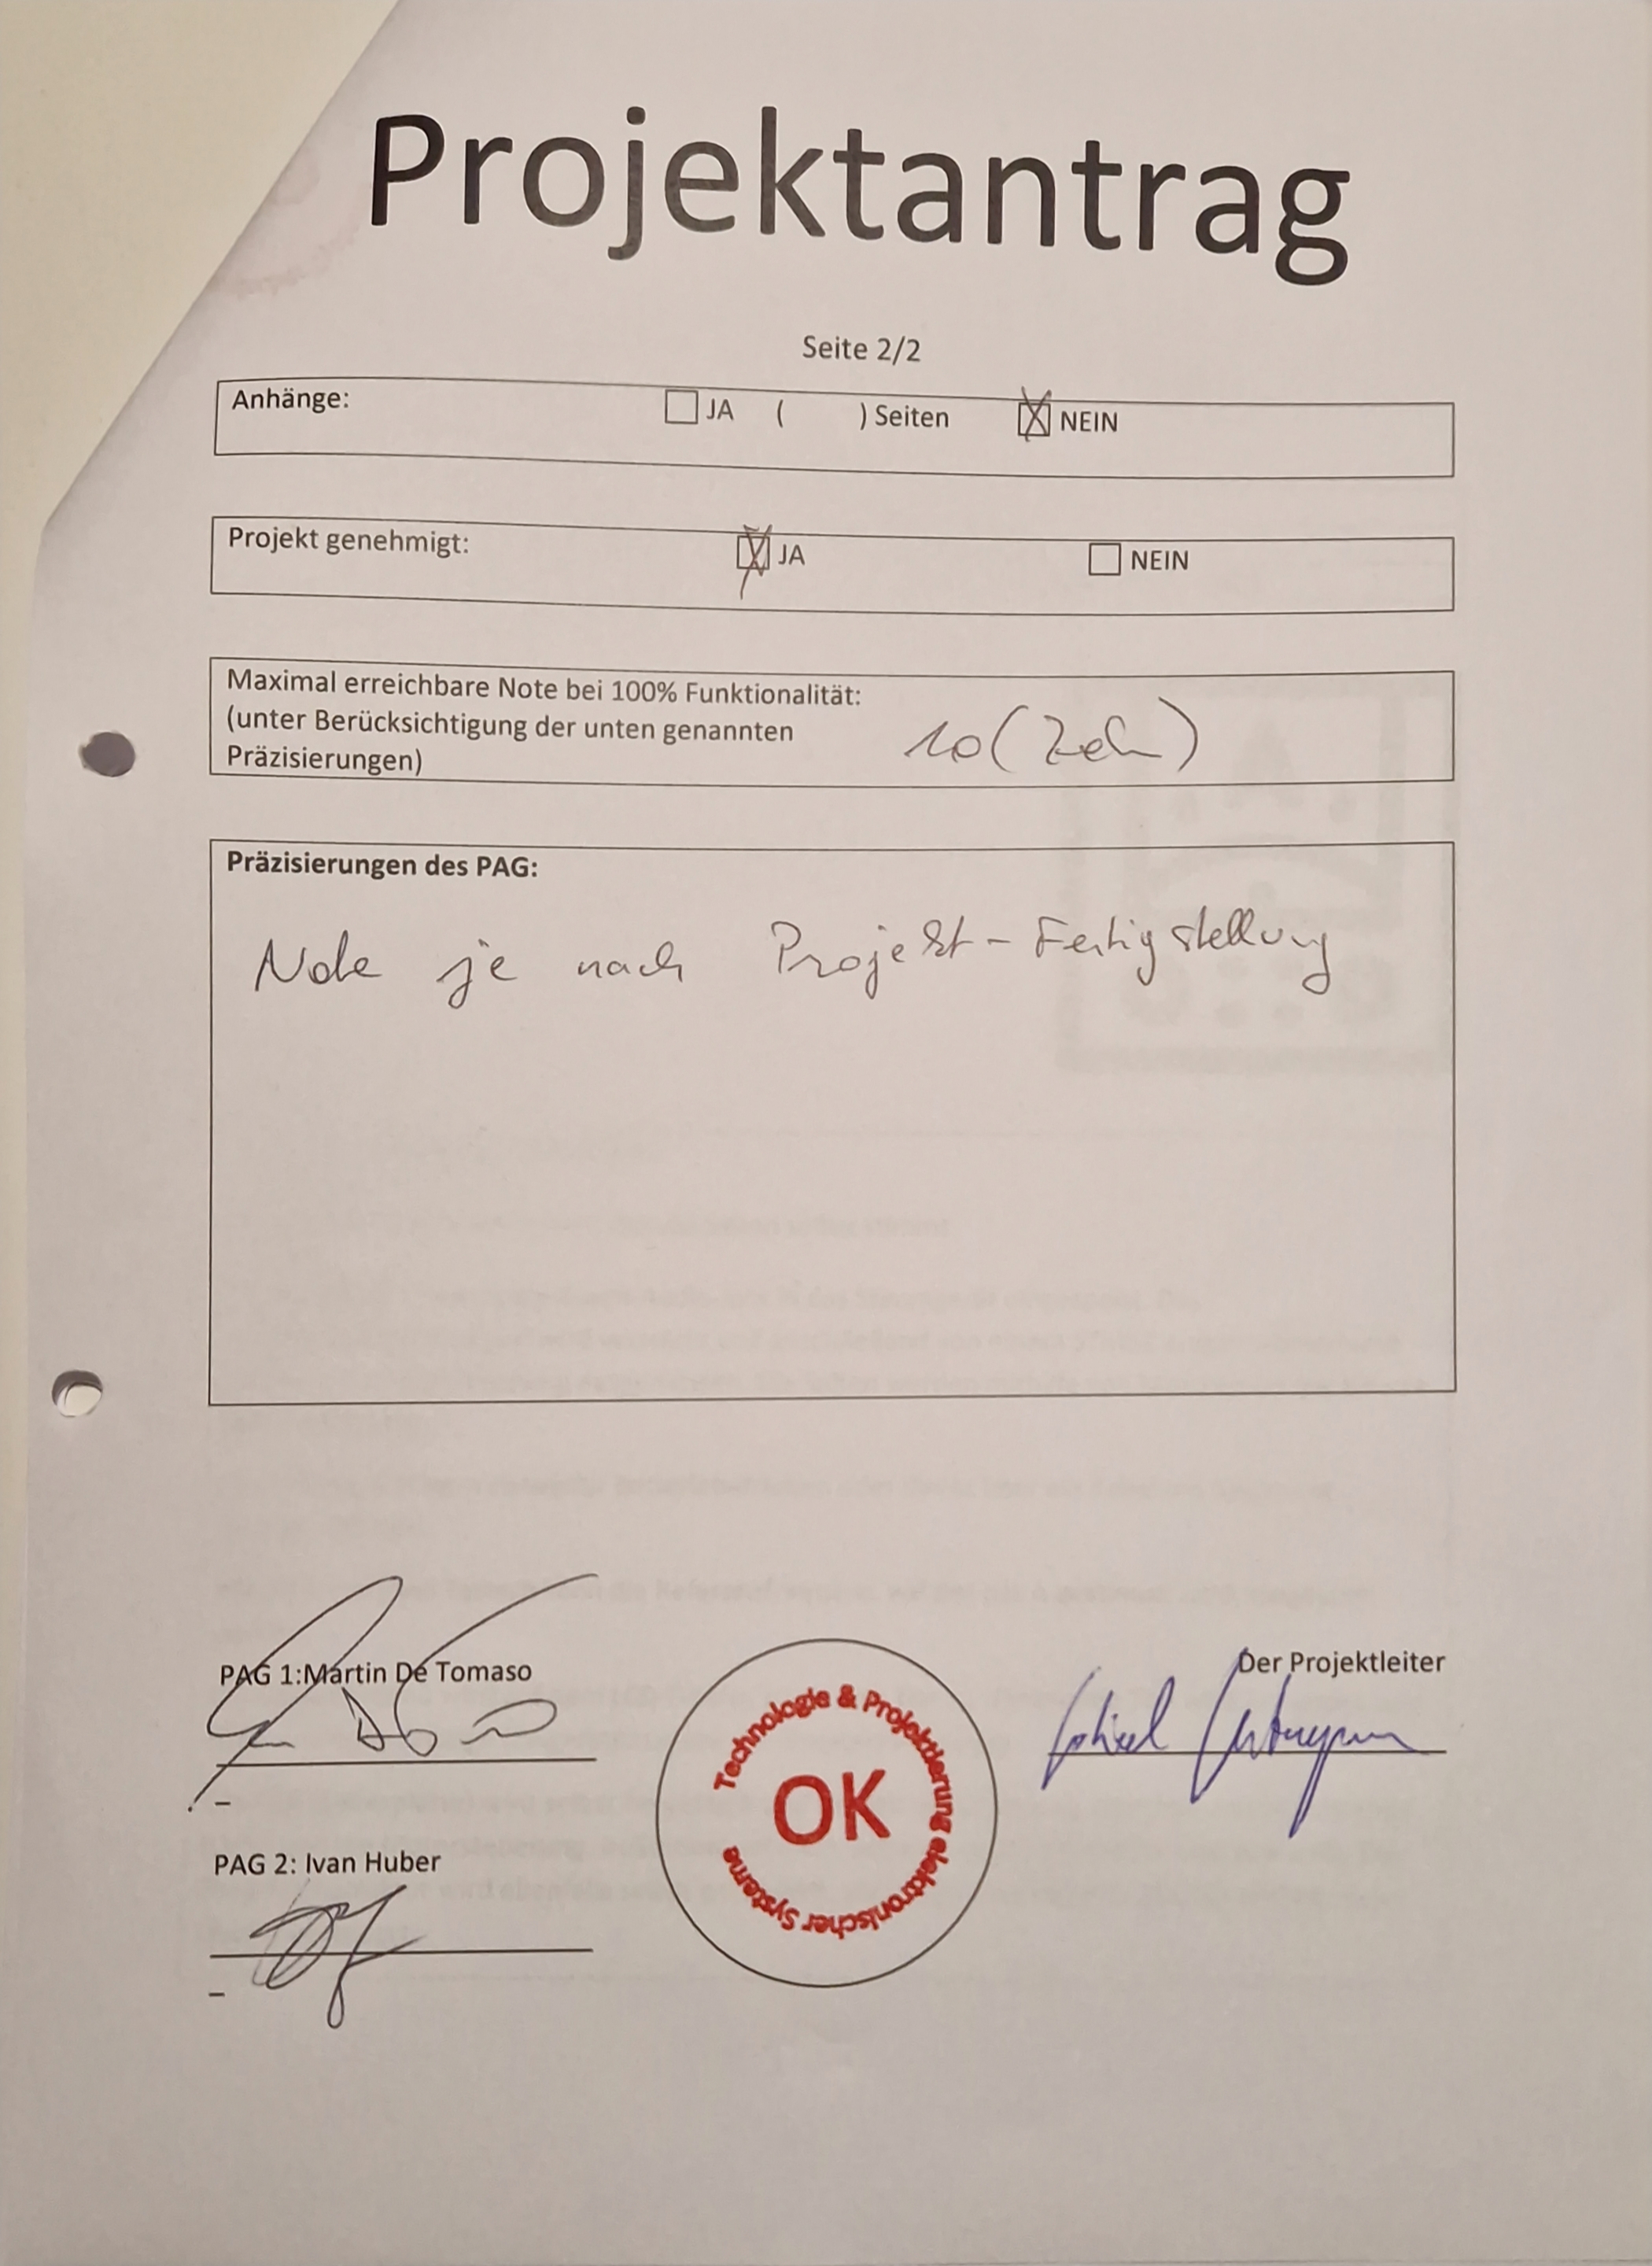 Projektantrag
Seite 2/2
Anhänge: JA ( ) Seiten NEIN
Projekt genehmigt: JA NEIN
Maximal erreichbare Note bei 100% Funktionalität:
(unter Berücksichtigung der unten genannten
Präzisierungen)
10 (Zehn)
Präzisierungen des PAG:
Note je nach Projekt-Fertigstellung
PAG 1:Martin De Tomaso
Der Projektleiter
Technologie & Projektierung elektronischer Systeme
OK
PAG 2: Ivan Huber